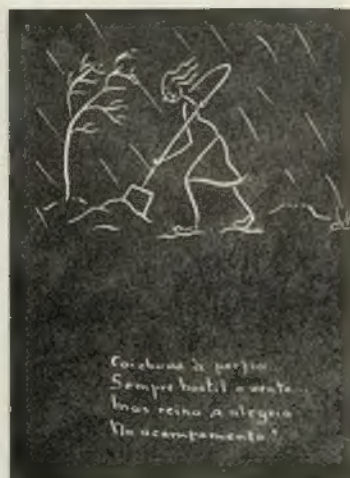 Cai chuva à porfia
Sempre hostil o vento...
Mas reina a alegria
No acampamento!